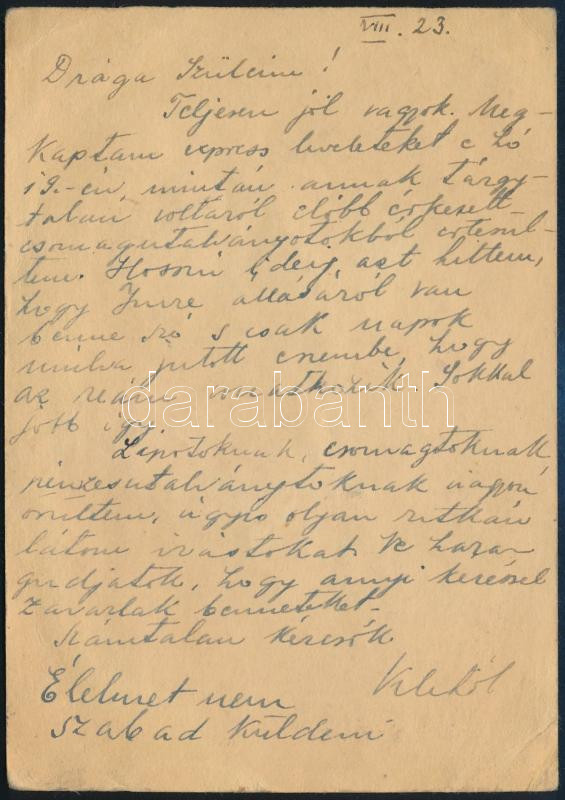 VIII. 23.
Drága Szüleim!
Teljesen jól vagyok. Meg-
kaptam express leveleteket e hó
19.-én, miután annak tárgy-
talan voltáról előbb érkezett
csomagutalványotokból értesül-
tem. Hosszú ideig azt hittem,
hogy Imre állásáról van
benne szó s csak napok
mulva jutott eszembe, hogy
az reám vonatkozik. Sokkal
jobb így.
csomagtoknak
pénzesutalványtoknak nagyon
örültem, úgyis olyan ritkán
látom írástokat. Ne hara-
gudjatok, hogy annyi kéréssel
zavarlak benneteket.
Számtalan kézcsók
Élelmet nem
szabad küldeni
darabanth